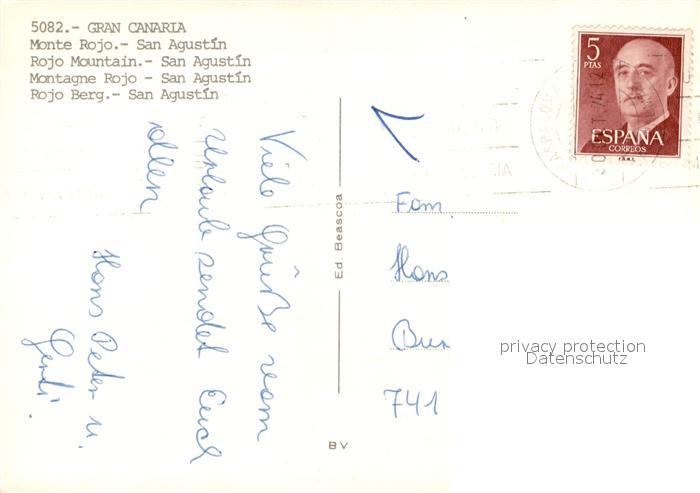 5082.- GRAN CANARIA
Monte Rojo.- San Agustín
Rojo Mountain.- San Agustín
Montagne Rojo - San Agustín
Rojo Berg.- San Agustín
5
PTAS
ESPAÑA
CORREOS
F.N.M.T.
Viele Grüße vom
Urlaub sendet Euch
allen
Hans Peter u.
Gerdi.
Ed. Beascoa
BV
Fam
Hans
741
privacy protection
Datenschutz